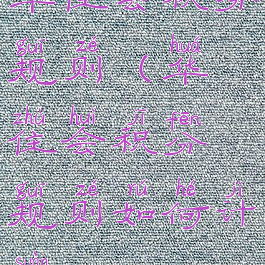 华住会积分
guī zé huá
规则（华
zhù huì jī fēn
住会积分
guī zé rú hé jì
规则如何计
suàn